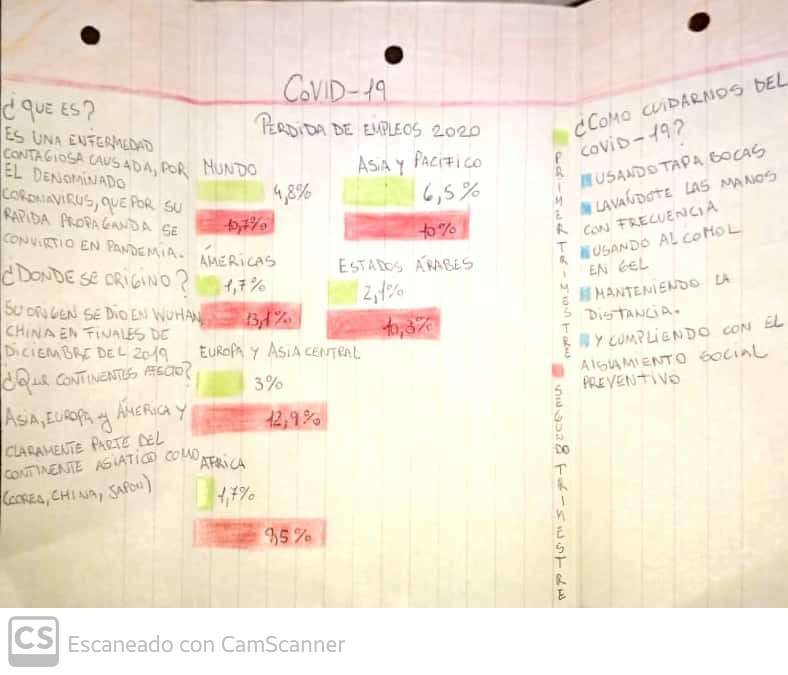 COVID-19
¿QUE ES?
ES UNA ENFERMEDAD
CONTAGIOSA CAUSADA, POR
EL DENOMINADO
CORONAVIRUS, QUE POR SU
RAPIDA PROPAGANDA SE
CONVIRTIO EN PANDEMIA.
¿DONDE SE ORIGINO?
SU ORIGEN SE DIO EN WUHAN
CHINA EN FINALES DE
DICIEMBRE DEL 2019
¿QUE CONTINENTES AFECTO?
ASIA, EUROPA Y ÁMERICA Y
CLARAMENTE PARTE DEL
CONTINENTE ASIATICO COMO
(COREA, CHINA, JAPON)
PERDIDA DE EMPLEOS 2020
MUNDO
4,8%
10,7%
ASIA Y PACÍFICO
6,5%
10%
ÁMERICAS
1,7%
13,1%
ESTADOS ÁRABES
2,1%
10,3%
EUROPA Y ASIA CENTRAL
3%
12,9%
AFRICA
1,7%
9,5%
PRIMER TRIMESTRE
SEGUNDO TRIMESTRE
¿COMO CUIDARNOS DEL
COVID-19?
USANDO TAPA BOCAS
LAVANDOTE LAS MANOS
CON FRECUENCIA
USANDO ALCOHOL
EN GEL
MANTENIENDO LA
DISTANCIA.
Y CUMPLIENDO CON EL
AISLAMIENTO SOCIAL
PREVENTIVO
CS Escaneado con CamScanner